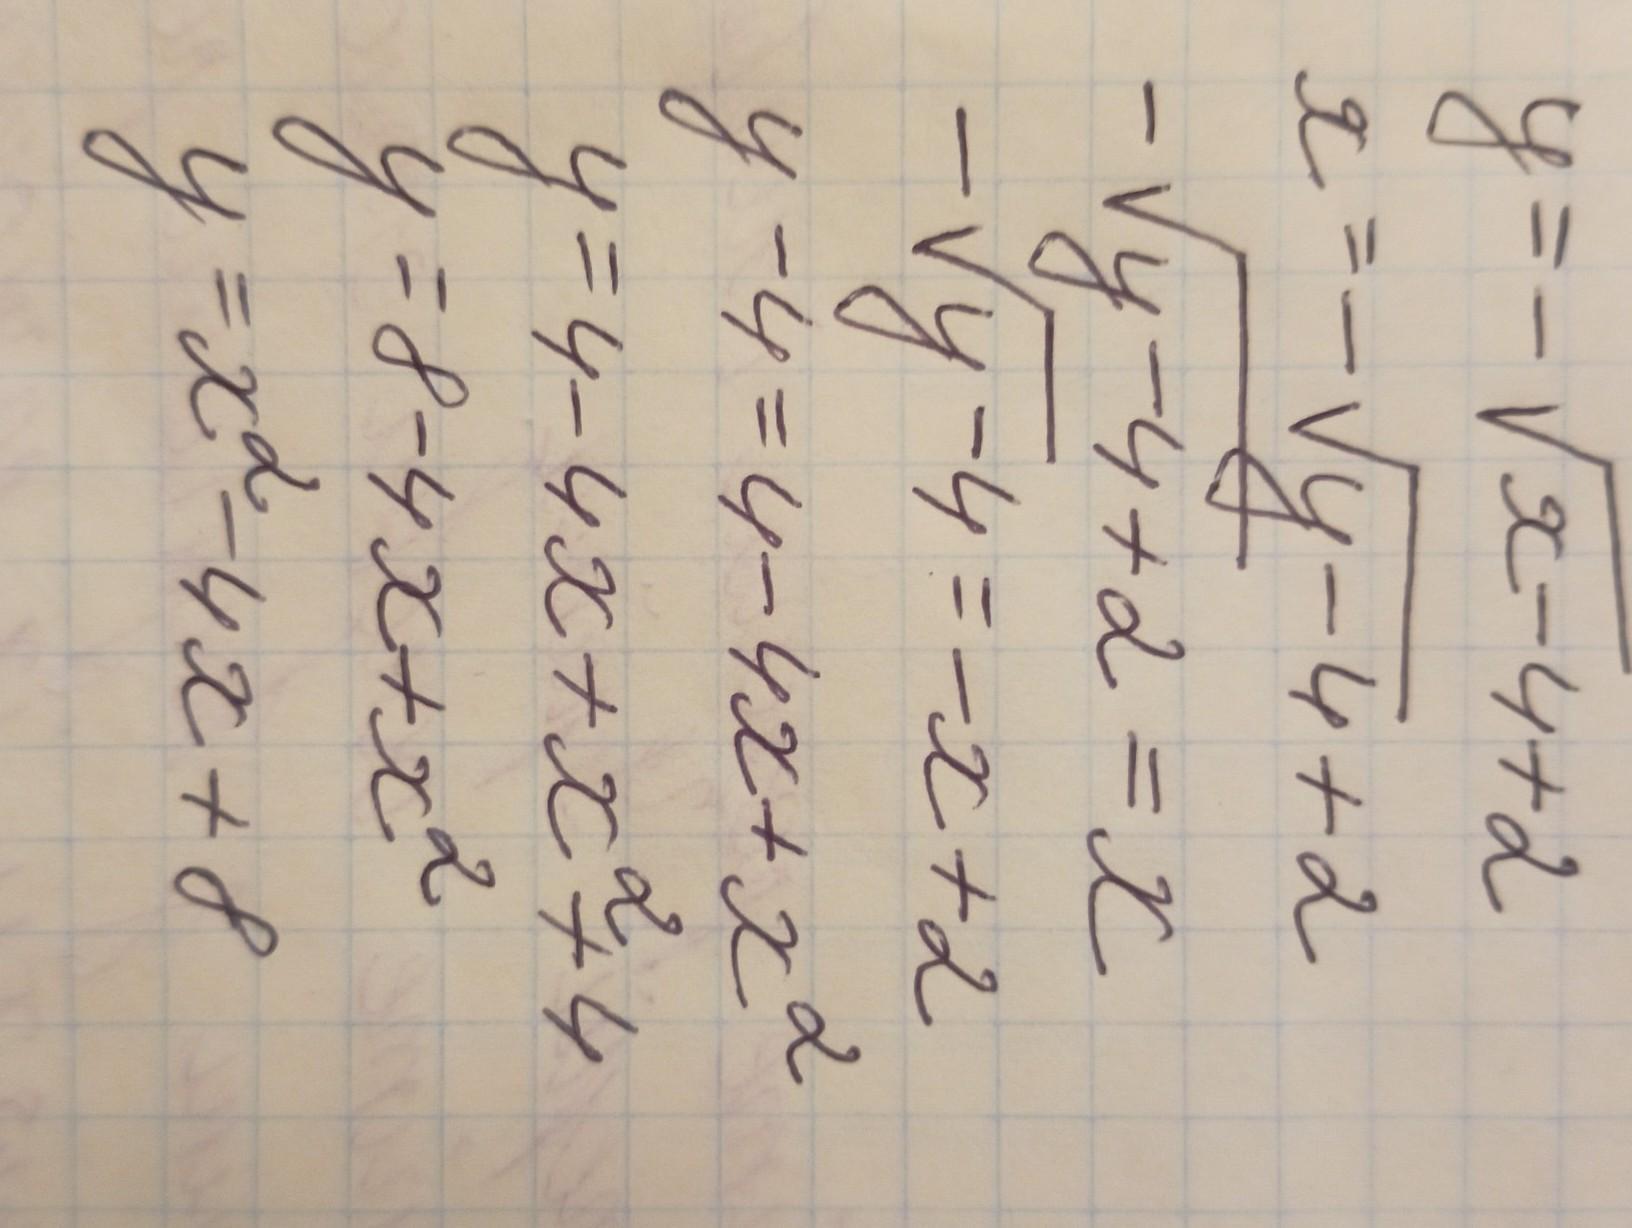 y = -√(x-4) + 2
x = -√(y-4) + 2
-√(y-4) + 2 = x
-√(y-4) = -x + 2
y - 4 = 4 - 4x + x²
y = 4 - 4x + x² + 4
y = 8 - 4x + x²
y = x² - 4x + 8